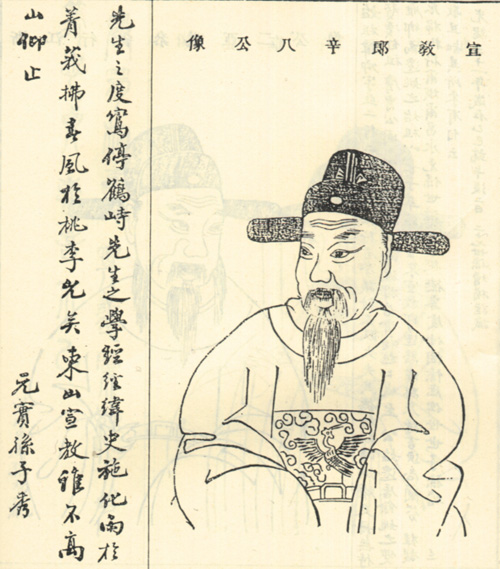 宣教郎辛八公像
先生之度鸞停鶴峙先生之學經經緯史施化雨於
菁莪拂春風於桃李允矣東山宣教誰不高
山仰止
元實孫子秀